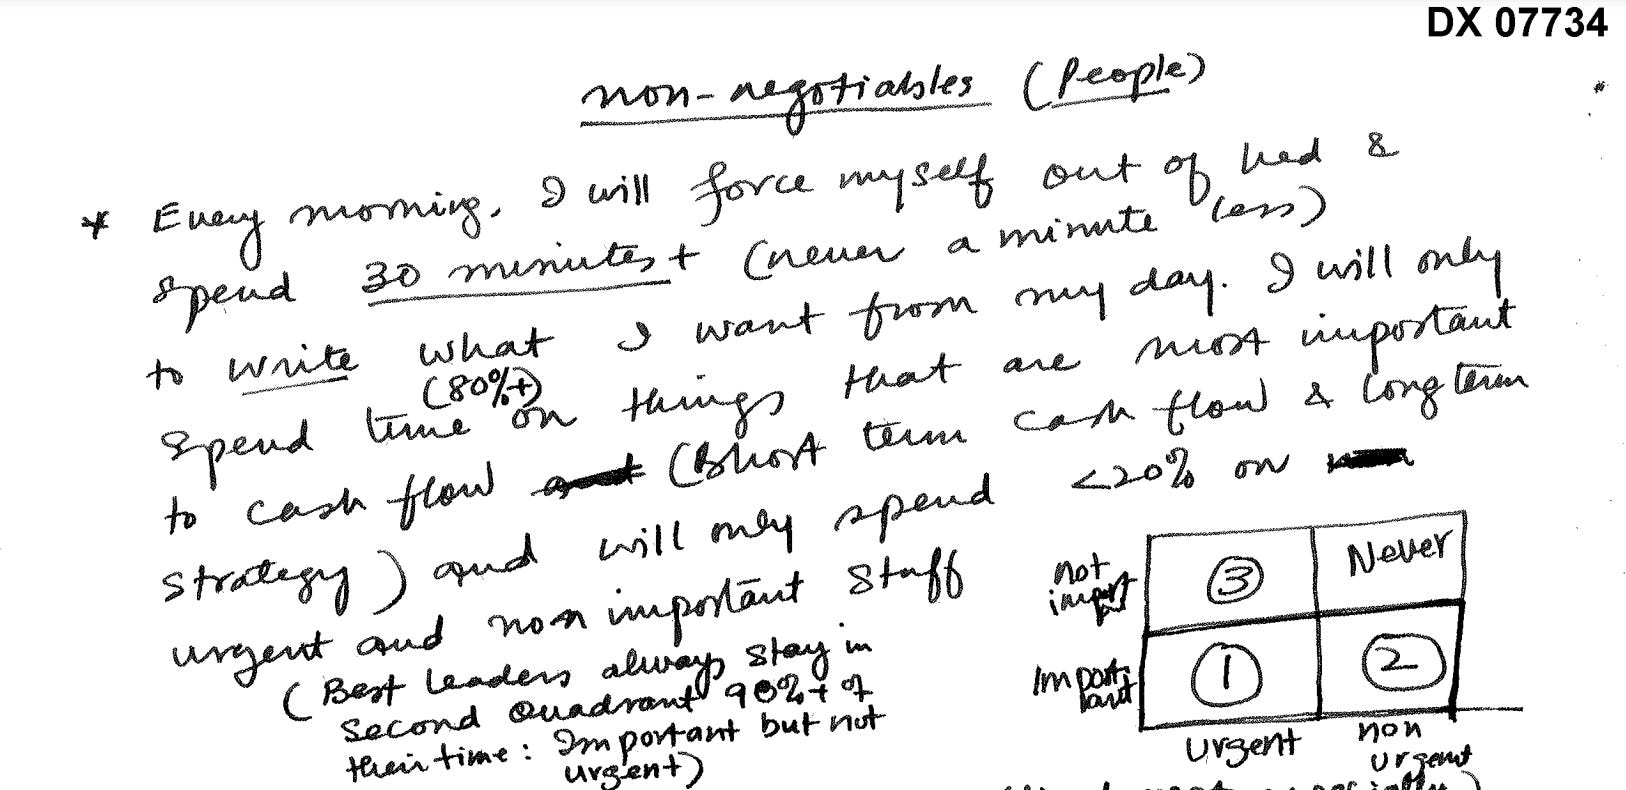 DX 07734
non-negotiables (People)
* Every morning, I will force myself out of bed &
spend 30 minutes + (never a minute less)
to write what I want from my day. I will only
(80%+)
spend time on things that are most important
to cash flow (short term cash flow & long term
strategy) and will only spend <20% on
urgent and non important stuff
(Best leaders always stay in
second quadrant 90%+ of
their time: Important but not
urgent)
not
import
ant
3
Never
Import-
ant
1
2
urgent
non
urgent